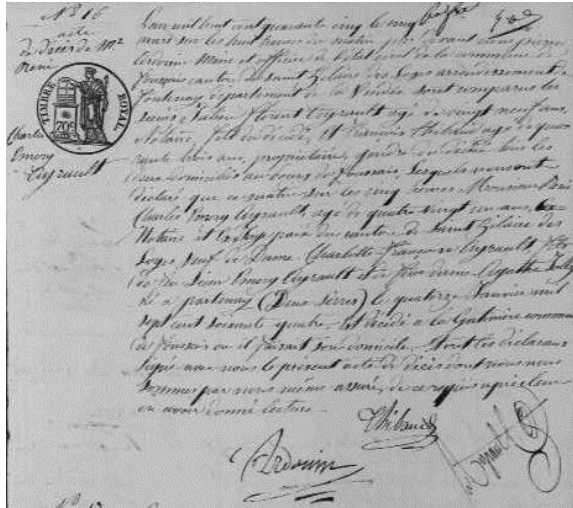 N.° 16
acte
de décès de Mr
René
Charles
Emery
Ayrault
TIMBRE ROYAL
L'an mil huit cent quarante cinq le cinq
mars sur les huit heures du matin par devant nous pierre
Ardouin Maire et officier de l'état civil de la commune de
foussais canton de Saint hilaire des loges arrondissement de
fontenay département de la Vendée sont comparus les
sieurs Florent Ayrault agé de vingt neuf ans,
Notaire, fils du décédé, Et François Thibaud agé de qua-
rante trois ans, propriétaire, gendre du décédé tous les
deux domiciliés au bourg de foussais, Lesquels nous ont
déclaré que ce matin sur les cinq heures Monsieur René
Charles Emery Ayrault, agé de quatre vingt un ans,
Notaire et juge de paix du canton de Saint hilaire des
loges Veuf de Dame Charlotte françoise Ayrault fils
de feu Emery Ayrault et de feue dame Agathe
né à partenay (Deux sèvres) le quatorze Janvier mil
sept cent soixante quatre, Est décédé à la commune
de foussais ou il faisait son domicile. Et ont les déclarans
signé avec nous le présent acte de décès dont nous nous
sommes par nous même assuré, de ce requis après leur
en avoir donné lecture
Thibaud
Ardouin
Ayrault